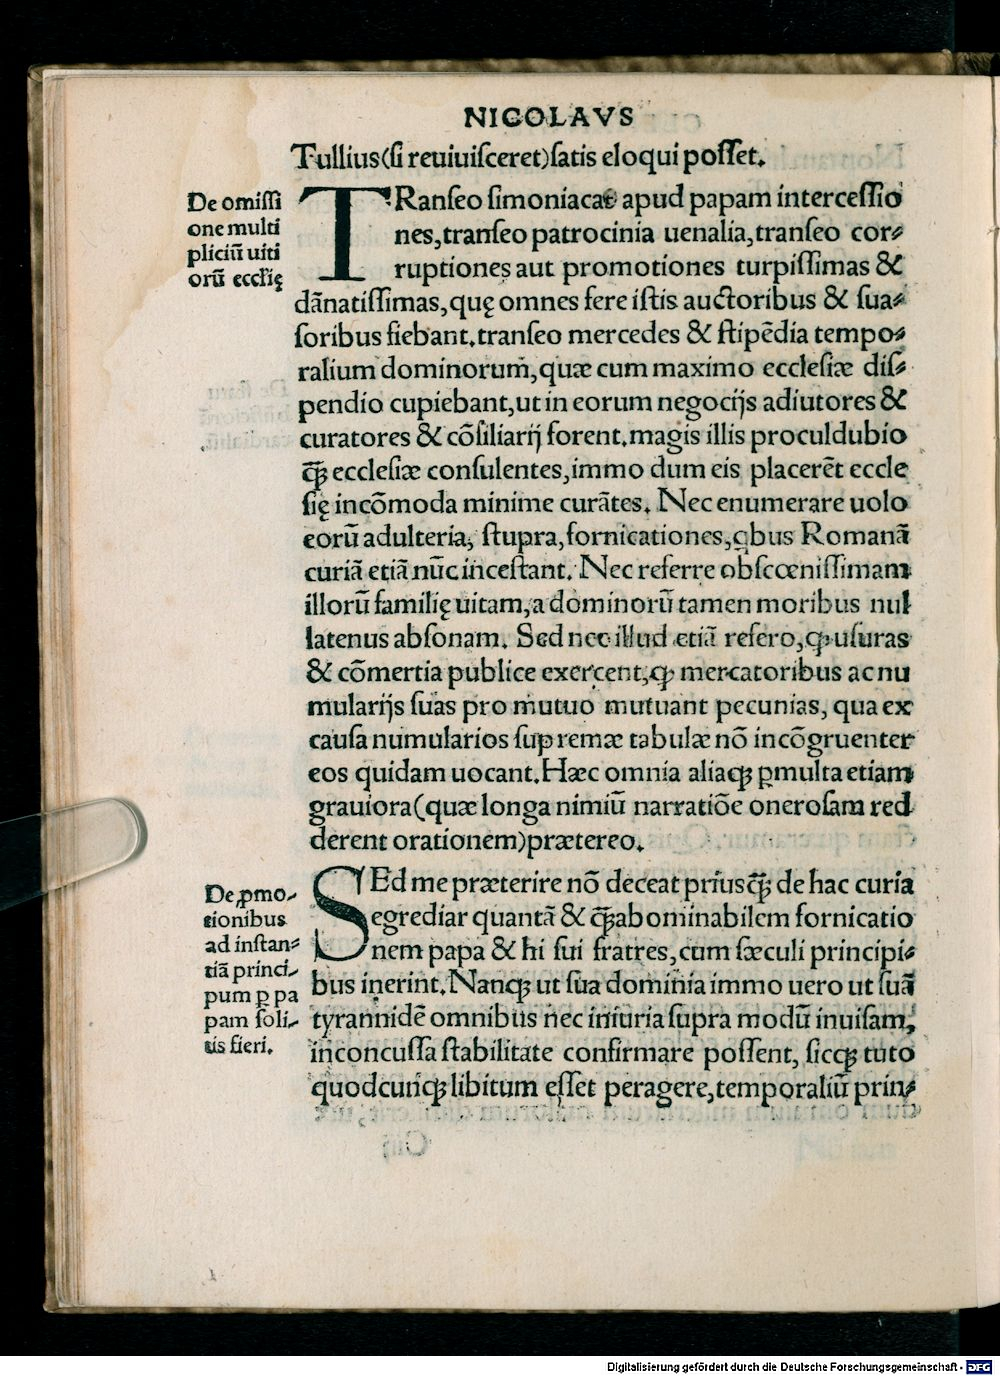 NICOLAVS
Tullius(ſi reuiuiſceret)ſatis eloqui poſſet.
De omiſſi
one multi
pliciũ uiti
orũ eccľię
TRanſeo ſimoniacas apud papam interceſſio
nes,tranſeo patrocinia uenalia,tranſeo cor-
ruptiones aut promotiones turpiſſimas &
dãnatiſſimas,quę omnes fere iſtis auctoribus & ſua-
ſoribus fiebant.tranſeo mercedes & ſtipẽdia tempo-
ralium dominorum̃,quæ cum maximo eccleſiæ diſ-
pendio cupiebant,ut in eorum negocijs adiutores &
curatores & cõſiliarij forent.magis illis proculdubio
q̃ꝫ eccleſiæ conſulentes,immo dum eis placerẽt eccle
ſię incõmoda minime curãtes. Nec enumerare uolo
eorũ adulteria, ſtupra,fornicationes,qbus Romanã
curiã etiã nũc inceſtant. Nec referre obſcœniſſimam
illorũ familię uitam,a dominorũ tamen moribus nul
latenus abſonam. Sed nec illud etiã refero,ꝙ uſuras
& cõmertia publice exercent,ꝙ mercatoribus ac nu
mularijs ſuas pro mutuo mutuant pecunias, qua ex
cauſa numularios ſupremæ tabulæ nõ incõgruenter
eos quidam uocant.Hæc omnia aliaqꝫ ꝑmulta etiam
grauiora(quæ longa nimiũ narratiõe oneroſam red
derent orationem)prætereo.
De ꝓmo-
tionibus
ad inſtan-
tiã princi-
pum ꝑ pa
pam ſoli-
tis fieri.
SEd me præterire nõ deceat priusq̃ꝫ de hac curia
egrediar quantã & q̃ꝫ abominabilem fornicatio
nem papa & hi ſui fratres,cum ſæculi principi-
bus inerint.Nanqꝫ ut ſua dominia immo uero ut ſuã
tyrannidẽ omnibus nec iniuria ſupra modũ inuiſam,
inconcuſſa ſtabilitate confirmare poſſent, ſicqꝫ tuto
quodcunqꝫ libitum eſſet peragere,temporaliũ prin-
Digitalisierung gefördert durch die Deutsche Forschungsgemeinschaft - DFG